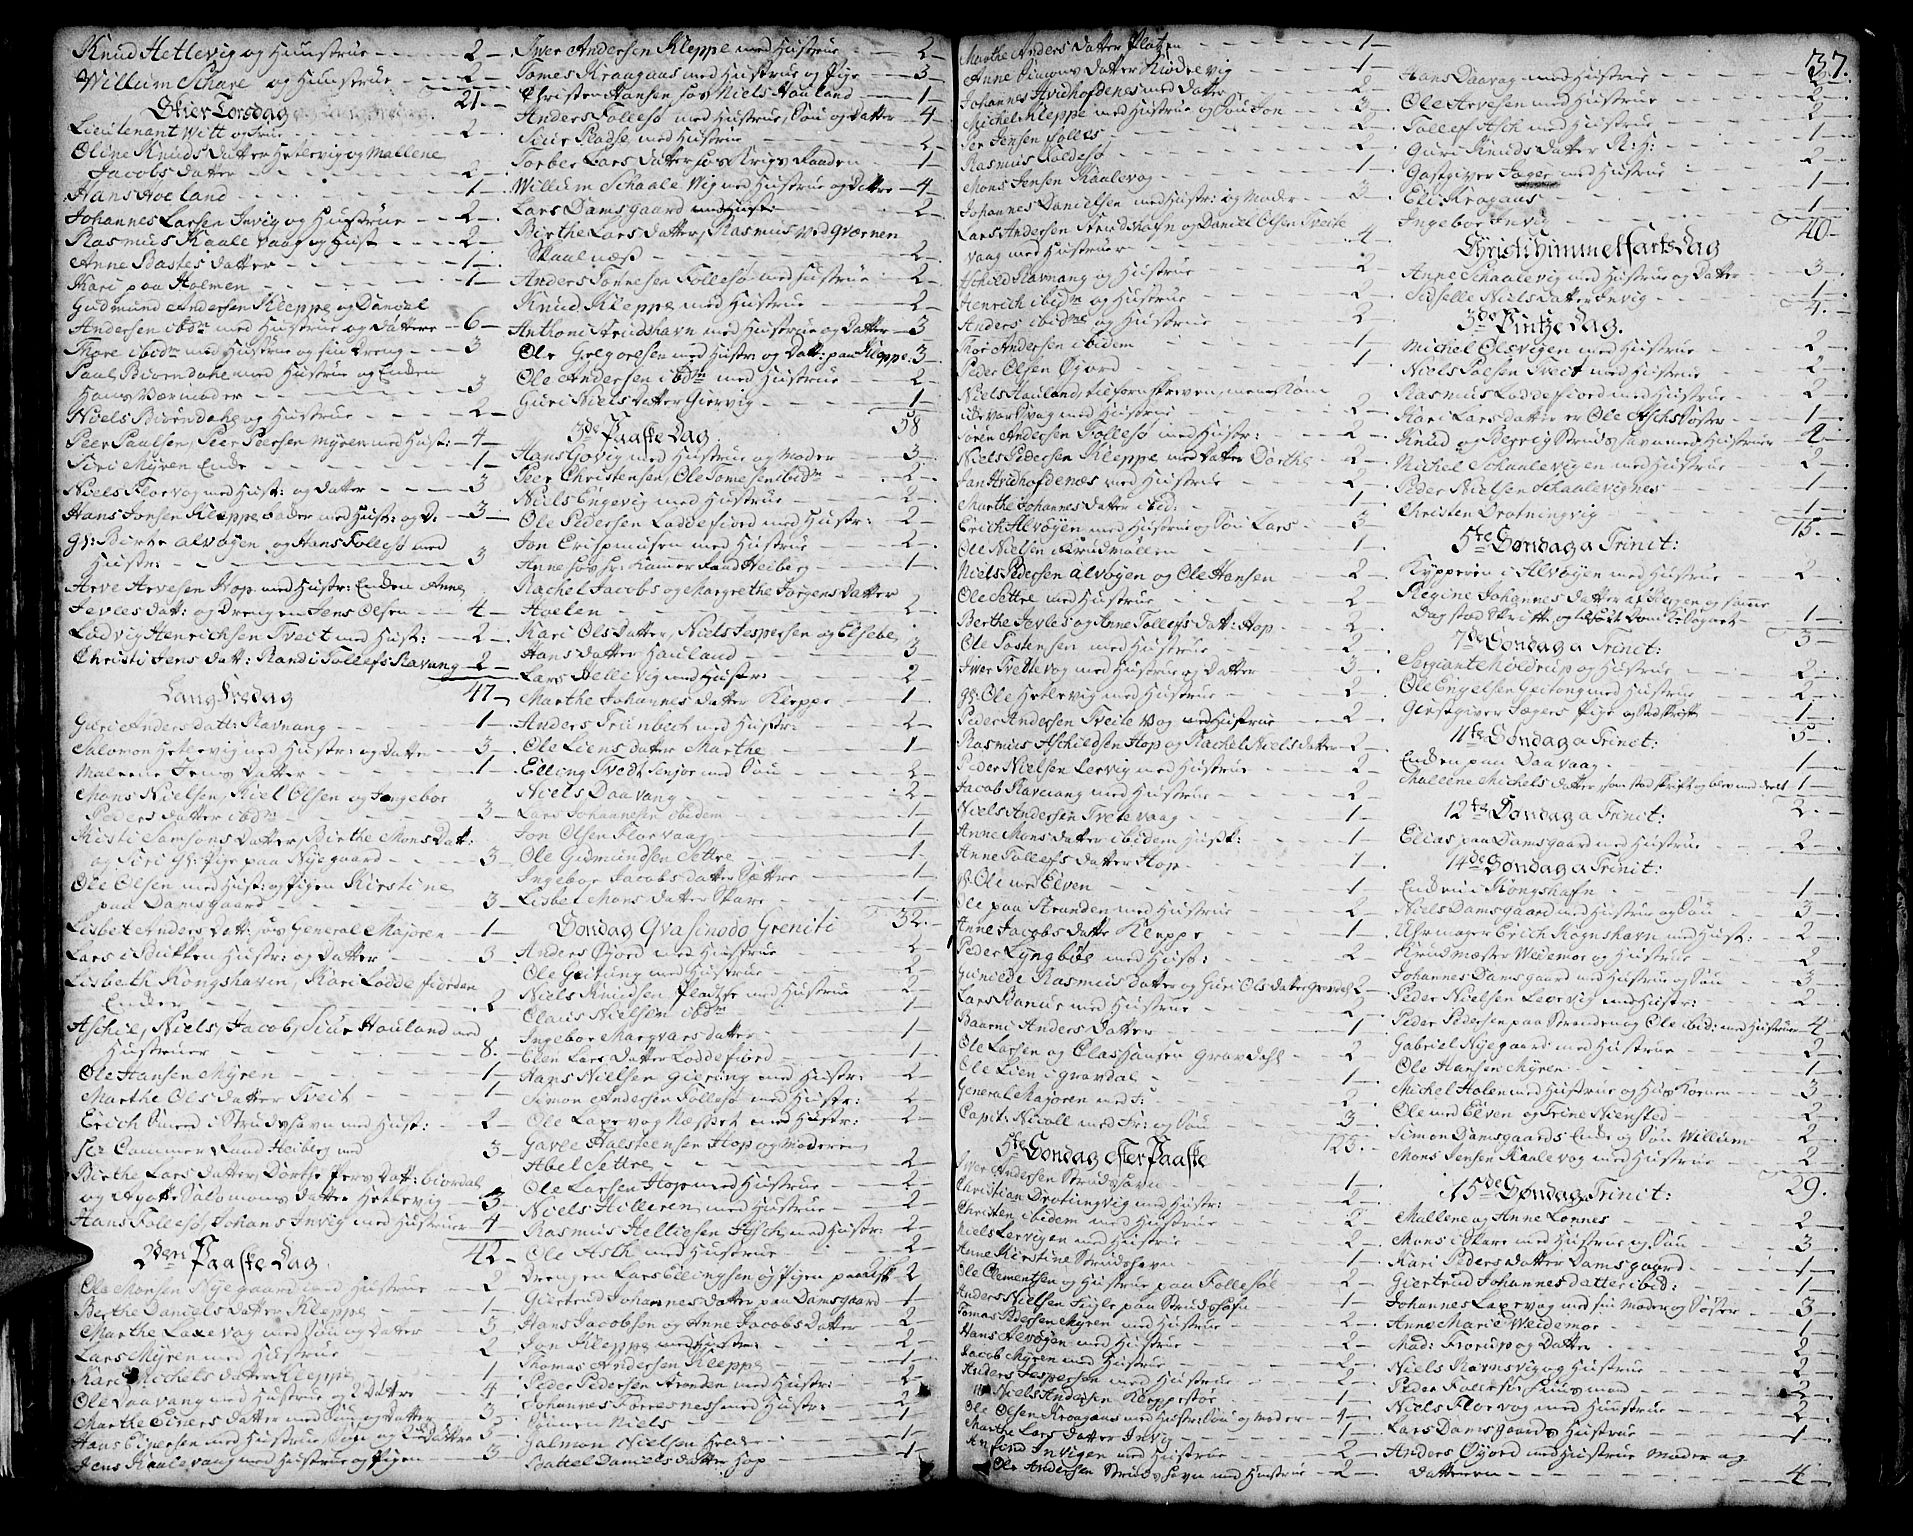 Knud Hetlevig og Huustrue - - - 2 -
Willum Schare og Huustrue - - - 2 -
21 -
Skier Torsdag
Lieutenant Witt og frue - - - 2 -
Oline Knuds Datter Hetlevig og Mallene
Jacobs Datter - - - 2 -
Hans Hoeland - - - 1 -
Johannes Larsen Invig og Hustrue - - 2 -
Rasmus Kaale vaag og Hust - - 2 -
Anne Bastes Datter - - - 1 -
Kari paa Holmen - - - 1 -
Gudmund Andersen Kleppe og Daniel
Andersen ibdm med Hustrue og Døttre - 6 -
Thore ibidm med Hustrue og sin Dreng - 3
Paul Biørndahl med Hustrue og Enden
Hans Værmoder - - - 3
Niels Biørndahl og Hustrue - - 2 -
Peer Paulsen, Peer Peersen Myren med Hust: - 4 -
Siri Myren Ende - - - 1 -
Niels Floevog med Hust: og Datter - - 3
Hans Jonsen Kleppe med Hust: og D: - 3 -
gl: Birthe Alvøyen og Hans Follesø med
Hustr: - - - 3
Arve Arvesen Hop med Hustr: Enden Anne
Jevles Dat: og Drengen Jens Olsen - - 4 -
Ludvig Henrichsen Tveit med Hust: - 2 -
Christi Jens Datt: Randi Tollefs Ravnang - 2 -
47 -
Lang Fredag
Guri Anders datt: Ravnang - - 1 -
Salomon Hetlevig med Hustr: og Datter - 3 -
Malene Jens Datter - - - 1 -
Mons Nielsen, Kiel Olsen og Ingebor
Peders datter ibdm - - - 3 -
Kristi Samsons Datter, Birthe Mons Datt:
og Siri gl: Pige paa Nyegaard - - 3 -
Ole Olsen med Hust: og Pigen Kirstine
paa Damsgaard - - - 3 -
Lisbet Anders Datt: hos General Majoren - 1 -
Lars i Bukken Hustr: og Datter - - 3
Lisbeth Kongshavn, Kari Loddefiorden
Ender - - - 2
Aschil, Niels, Jacob, Siur Houland med
Hustruer - - - 8.
Ole Hansen Myren - - - 1 -
Marthe Ols Datter Tveit - - 1
Erich Smed i Strudshavn med Hust: - 2 -
Hr Cammer Raad Heiberg med - 3 -
Birthe Lars Datter, Dorthe Pers Datt: biørdal
og Agate Salomons Datter Hetlevig - 3 -
Hans Follesø, Johans Invig med Hustruer 4
42 -
2den Paaske Dag
Ole Monsen Nyegaard med Hustrue - 2
Berthe Daniels Datter Kleppe - - 1 -
Marthe Laxevog med Søn og Datter - 3
Lars Myren med Hustrue - - 2
Kari Michels Datter Kleppe - - 1 -
Ole Daavang med Hustrue og 2 Døttre - 4
Marthe Einers Datter med Søn og Datter - 3
Hans Eiversen med Hustrue Søn og 2de Døttre - 5
Jens Kaalevang med Hustrue og Pigen - 3
Iver Andersen Kleppe med Hustrue - 2 -
Tomes Kraagaas med Hustrue og Pige - 3 -
Christen Hansen hos Niels Houland - 1 -
Anders Follesø med Hustrue, Søn og Datter - 4 -
Siur Ploese med Hustrue - - 2 -
Torber Lars Datter hos Krigs Raaden - 1 -
Willum Schaale Vig med Hustrue og Døttre - 4 -
Lars Damsgaard med Hust: - 2 -
Birthe Lars Datter, Rasmus ved Qvernen
Skaalnæss - - - 2 -
Anders Tønnesen Follesø med Hustrue - 2 -
Knud Kleppe med Hustrue - - 2 -
Anthoni Strudshavn med Hustrue og Datter - 3
Ole Gregorisen med Hustr: og Datt: paa Kleppe - 3 -
Ole Andersen ibdm med Hustrue - 2 -
Guri Niels Datter Giervig - - 1 -
58
3de Paaske Dag
Hans Govig med Hustrue og Moder - 3 -
Peer Christensen, Ole Tomesen ibdm - 2 -
Niels Engevig med Hustrue - - 2 -
Ole Pedersen Loddefiord med Hustr: - 2 -
Jon Crispinusen med Hustrue - - 2 -
Anne hos hr: Kamer Raad Heiberg - 1 -
Rachel Jacobs og Margrethe Jørgens Datter
Holen - - - 2 -
Kari Ols Datter, Niels Jespersen og Elsebe
Hans datter Houland - - 3 -
Lars Hellevig med Hustr: - - 2 -
Marthe Johannes Datter Kleppe - 1 -
Anders Feienbech med Hustr: - 2 -
Ole Liens datter Marthe - - 1 -
Elling Tvedt Senior med Søn - 2 -
Niels Daavang - - - 2 -
Lars Johannesen ibidem - - 1 -
Jon Olsen Floevaag - - 1 -
Ole Gudmundsen Settre - - 1 -
Ingebor Jacobs datter Sættre - 1 -
Lisbet Mons Datter Skare - - 1 -
32. -
Søndag Qvasimodo Geniti
Anders Øyord med Hustrue - - 2 -
Ole Geitung med Hustrue - - 2 -
Niels Knudsen Pladtze med Hustrue - 2 -
Claus Nielsen ibdm - - 1 -
Ingebor Margvars datter - - 1 -
Elen Lars Datter Loddefiord - - 1 -
Hans Nielsen Giering med Hustr: - 2 -
Simon Andersen Follesø med Hustr: - 2 -
Ole Laxevog Næsset med Hustr: - 2 -
Gavle Halsteensen Hop og Moderen
Abel Settre - - - 2 -
Ole Larsen Hop med Hustrue - - 2 -
Niels Hilleren med Hustrue - - 2 -
Rasmus Helliesen Asch med Hustr: - 2 -
Ole Asch med Hustrue - - 2 -
Drengen Lars Ellingsen og Pigen paa Ask 2
Giertrud Johannes datter paa Damsgaard - 1 -
Hans Jacobsen og Anne Jacobs Datter - 2 -
Jon Kleppe med Hustrue - - 2 -
Thomas Andersen Kleppe - - 1 -
Peder Pedersen Stranden med Hustr: - 2 -
Johannes Torresnes med Hustr: - 2 -
Sønnen Niels - - - 1 -
Salmon Nielsen Helde - - 1 -
Battel Daniels datter Hop - - 1 -
Marthe Anders Datter Platzen - - 1 -
Anne Simons Datter Kiødevig - - 1 -
Johannes Hvidhofdenes med Datter - - 2 -
Michel Kleppe med Hustrue og Søn Jon - 3 -
Per Jensen Follesø - - - 2 -
Rasmus Foldesø - - -
Mons Jensen Kaalevog - - 1 -
Johannes Danielsen med Hustr: og Moder - 3
Lars Andersen Strudshafn og Daniel Olsen Tveite
vaag med Hustruer - - - 4 -
Aschild Ravnang og Hustrue - - 2
Henrich ibidm og Hustrue - - 2 -
Anders ibidme og Hustrue - - 2 -
Thor Andersen ibidem - - 1 -
Peder Olsen Øyord - - - 1 -
Niels Houland, tilforn skreven, men Søn
Ildevar Svag med Hustrue - - 2 -
Søren Andersen Follesø med Hustr: - 2 -
Niels Pedersen Kleppe med Datter Dorthe - 2 -
Jan Hvidhofdenæs med Hustrue - - 2 -
Marthe Johannes Datter ibid: - - 1 -
Erich Alvøyen med Hustrue og Søn Lars - 3 -
Ole Nielsen i Krudmøllen - - 1 -
Niels Pedersen Alvøyen og Ole Hansen - 2 -
Ole Settre med Hustrue - - 2 -
Berthe Jevles og Anne Tollefs Datt: Hop - 2 -
Ole Tostensen med Hustrue - - 2
Iver Tvettevog med Hustrue og Datter - 3 -
gl: Ole Hetlevig med Hustrue - - 2 -
Peder Andersen Tveitevog med Hustrue - 2 -
Rasmus Aschildsen Hop og Rachel Niels datter - 2 -
Peder Nielsen Lervig med Hustrue - 2 -
Jacob Ravnang med Hustrue - - 2 -
Niels Andersen Tvetevaag - - 1 -
Anne Mons datter ibidem Hust: - 1 -
Anne Tollefs datter Hop - - 1 -
gl: Ole med Elven - - - 1 -
Ole paa Stranden med Hustrue - 2 -
Anne Jacobs datter Kleppe - - 1 -
Peder Lyngbøe med Hust: - - 2 -
Gunilde Rasmus Datter og Guri Ols datter Gravdal 2 -
Lars Banus med Hustrue - - 2 -
Baarni Anders Datter - - 1 -
Ole Larsen og Clas Hansen Gravdahl - 2 -
Ole Lien i Gravdal - - 1 -
General Majoren med F: - - 2 -
Capit: Nicoll med Fr: og Søn - - 3 -
125. -
5te Søndag efter Paaske
Iver Andersen Strudshavn - - 1 -
Christian Drotningvig med Hustr: - 2 -
Christen ibidem med Hustrue - - 2 -
Niels Lervigen med Hustrue - - 2
Anne Kirstine Strudshavn - - 1 -
Ole Clementsen og Hustrue paa Follesøe - 2 -
Anders Nielsen Fugle paa Strudshafn - 1 -
Tomas Pedersen Myren med Hustrue - 2 -
Hans Alvøyen med Hustrue - - 2 -
Jacob Myren med Hustrue - - 2 -
Anders Jespersen med Hustrue - 2 -
Niels Andersen Kleppestøe - - 1 -
Ole Olsen Kroagaas med Hustr: Søn og Moder - 4 -
Marthe Lars Datter Invig - - 1 -
Anfind Invigen med Hustrue - - 2 -
Ole Andersen Strudshavn med Hustrue - 2 -
37.
Hans Daavag med Hustrue - - 2
Ole Arvesen med Hustrue - - 2 -
Tollef Asch med Hustrue - - 2 -
Guri Knuds Datter R: H: - - 1 -
Gastgiver Jæger med Hustrue - 2 -
Eli Kragaas - - - 1 -
Ingebor Invig - - - 1 -
40 -
Christi himmelfarts Dag
Anne Schaalevig med Hustrue og Datter - 3 -
Sidselle Niels Datter Invig - - 1 -
4. -
3de Pintze Dag.
Michel Olsvigen med Hustrue - 2 -
Niels Poelsen Tveit med Hustrue - 2 -
Rasmus Loddefiord med Hustrue - 2 -
Kari Lars datter er Ole Aschs Søster - 1 -
Knud og Berrig Strudshavn med Hustruer 4 -
Michel Schaalevigen med Hustrue - 2 -
Peder Nielsen Schaalevignes - - 1 -
Christen Drotningvig - - 1 -
15. -
5te Søndag a Trinit:
Kypperen i Alvøyen med Hustrue - 2 -
Regine Johannes Datter af Bergen og samme
Dag stod Skrift, og - 1 -
3 -
7de Søndag a Trinit:
Sergiante Moldrup og Hustrue - 2 -
Ole Engelsen Geitong med Hustrue - 2 -
Giæstgiver Jægers Pige - 1 -
5 -
11te Søndag a Trinit:
Enden paa Daavaag - - 1 -
Mallene Michels datter, som stod skrift og blev med deel 1 -
2. -
12te Søndag a Trinit:
Elias paa Damsgaard med Hustrue - 2 -
14de Søndag a Trinit:
Enden i Kongshafn - - 1 -
Niels Damsgaard med Hustrue og Søn - 3 -
Uhrmager Erich Kognshavn med Hust: - 2 -
Krudmæster Wedemor og Hustrue - 2 -
Johannes Damsgaard med Hustrue og Søn - 3 -
Peder Nielsen Levevig med Hustr: - 2 -
Peder Pedersen paa Stranden og Ole ibid: med Hustruer - 4 -
Gabriel Nyegaard med Hustrue - 2 -
Ole Hansen Myren - - 1 -
Michel Holen med Hustrue og Huus Konen - 3 -
Ole med Elven og Trine Niensted - 2 -
Simon Damsgaards Ende og Søn Willum - 2 -
Mons Jensen Kaalevog med Hustrue - 2 -
29.
15de Søndag Trinit:
Mallene og Anne Lønnes - - 2 -
Mons i Skare med Hustrue og Søn - 3 -
Kari Peders Datter Damsgaard - 1 -
Giertrud Johannes datter ibid: - 1 -
Johannes Laxevog med sin Moder og Søster - 3 -
Anne Marie Weidemor - - 1 -
Mad: Frorup og Datter - - 2 -
Niels Ravnsvig og Hustrue - - 2 -
Peder Follesø - 2 -
Niels Floevog med Hustrue - - 2 -
Lars Damsgaards Hustrue - - 1 -
Anders Øyord med Hustrue Moder og
Datteren - - - 4 -